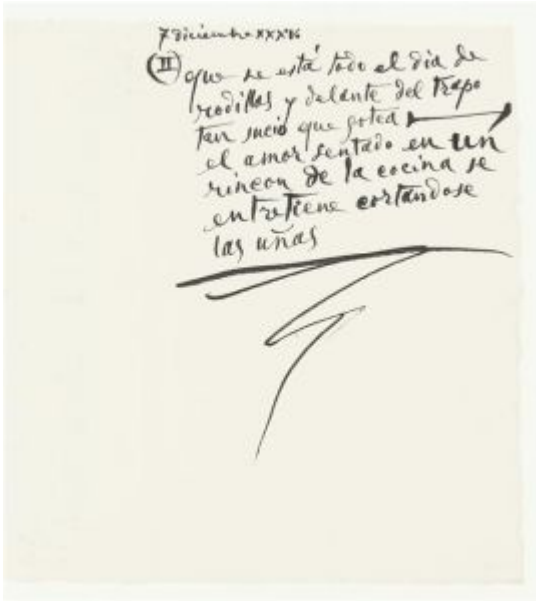 7 diciembre XXXVI
(II) que se está todo el dia de
rodillas y delante del trapo
tan sucio que gotea
el amor sentado en un
rincon de la cocina se
entretiene cortandose
las uñas